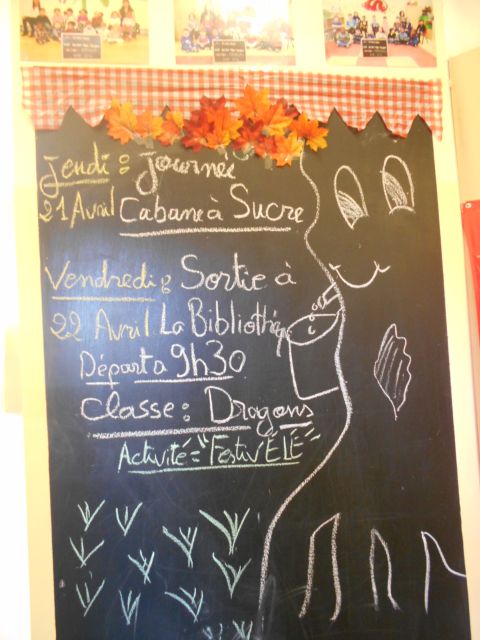 Jeudi : Journée
21 Avril Cabane à Sucre
Vendredi : Sortie à
22 Avril La Bibliothéq
Départ à 9h30
Classe : Dragons
Activité = "Festiv'ÉLÉ"